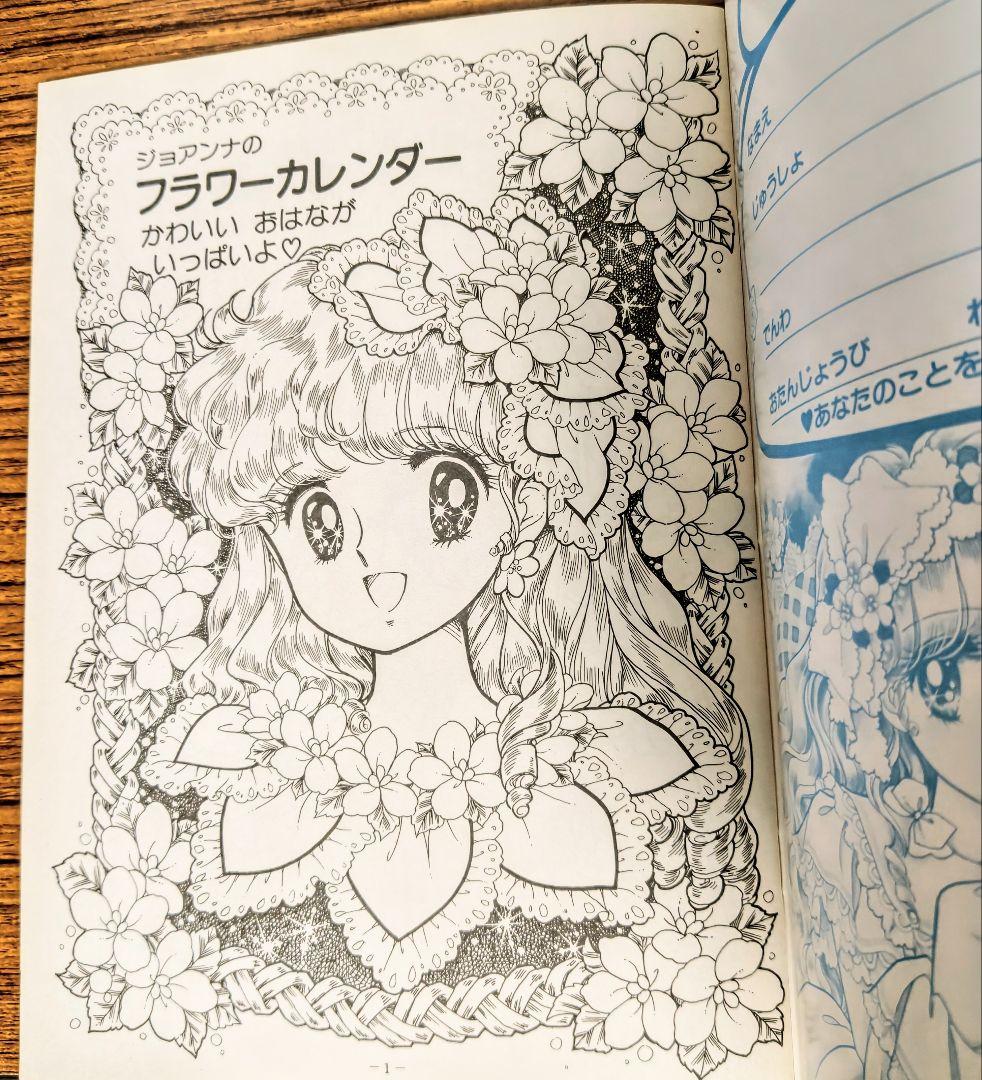 ジョアンナの
フラワーカレンダー
かわいい おはなが
いっぱいよ♡
－1－
なまえ
じゅうしょ
でんわ
おたんじょうび
♥あなたのことを